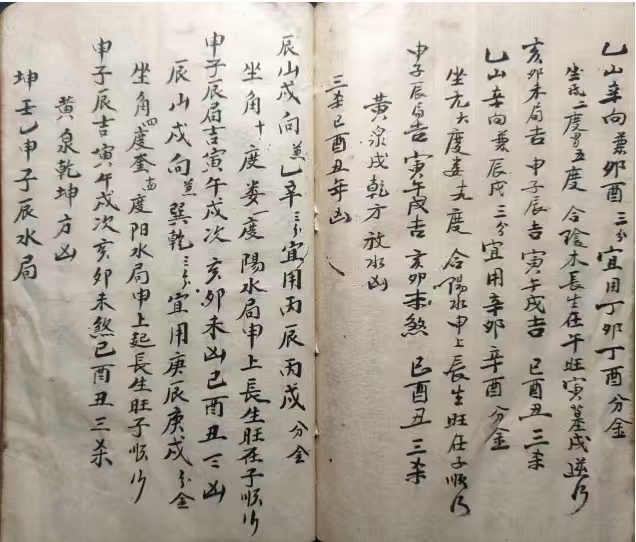 乙山辛向兼卯酉三分宜用丁卯丁酉分金
坐氐二度胃五度合陰木長生在午旺寅墓戌逆行
亥卯未局吉申子辰吉寅午戌吉巳酉丑三杀
乙山辛向兼辰戌三分宜用辛卯辛酉分金
坐亢六度娄九度合陽水申上長生旺在子順行
申子辰局吉寅午戌吉亥卯未煞巳酉丑三杀
黄泉戌乾方放水凶
三杀巳酉丑年凶
辰山戌向兼乙辛三分宜用丙辰丙戌分金
坐角十度娄一度陽水局申上長生旺在子順行
申子辰局吉寅午戌次亥卯未凶巳酉丑三凶
辰山戌向兼巽乾三分宜用庚辰庚戌分金
坐角四度奎度阳水局申上起長生旺子順行
申子辰吉寅午戌次亥卯未煞巳酉丑三杀
黄泉乾坤方凶
坤壬乙申子辰水局